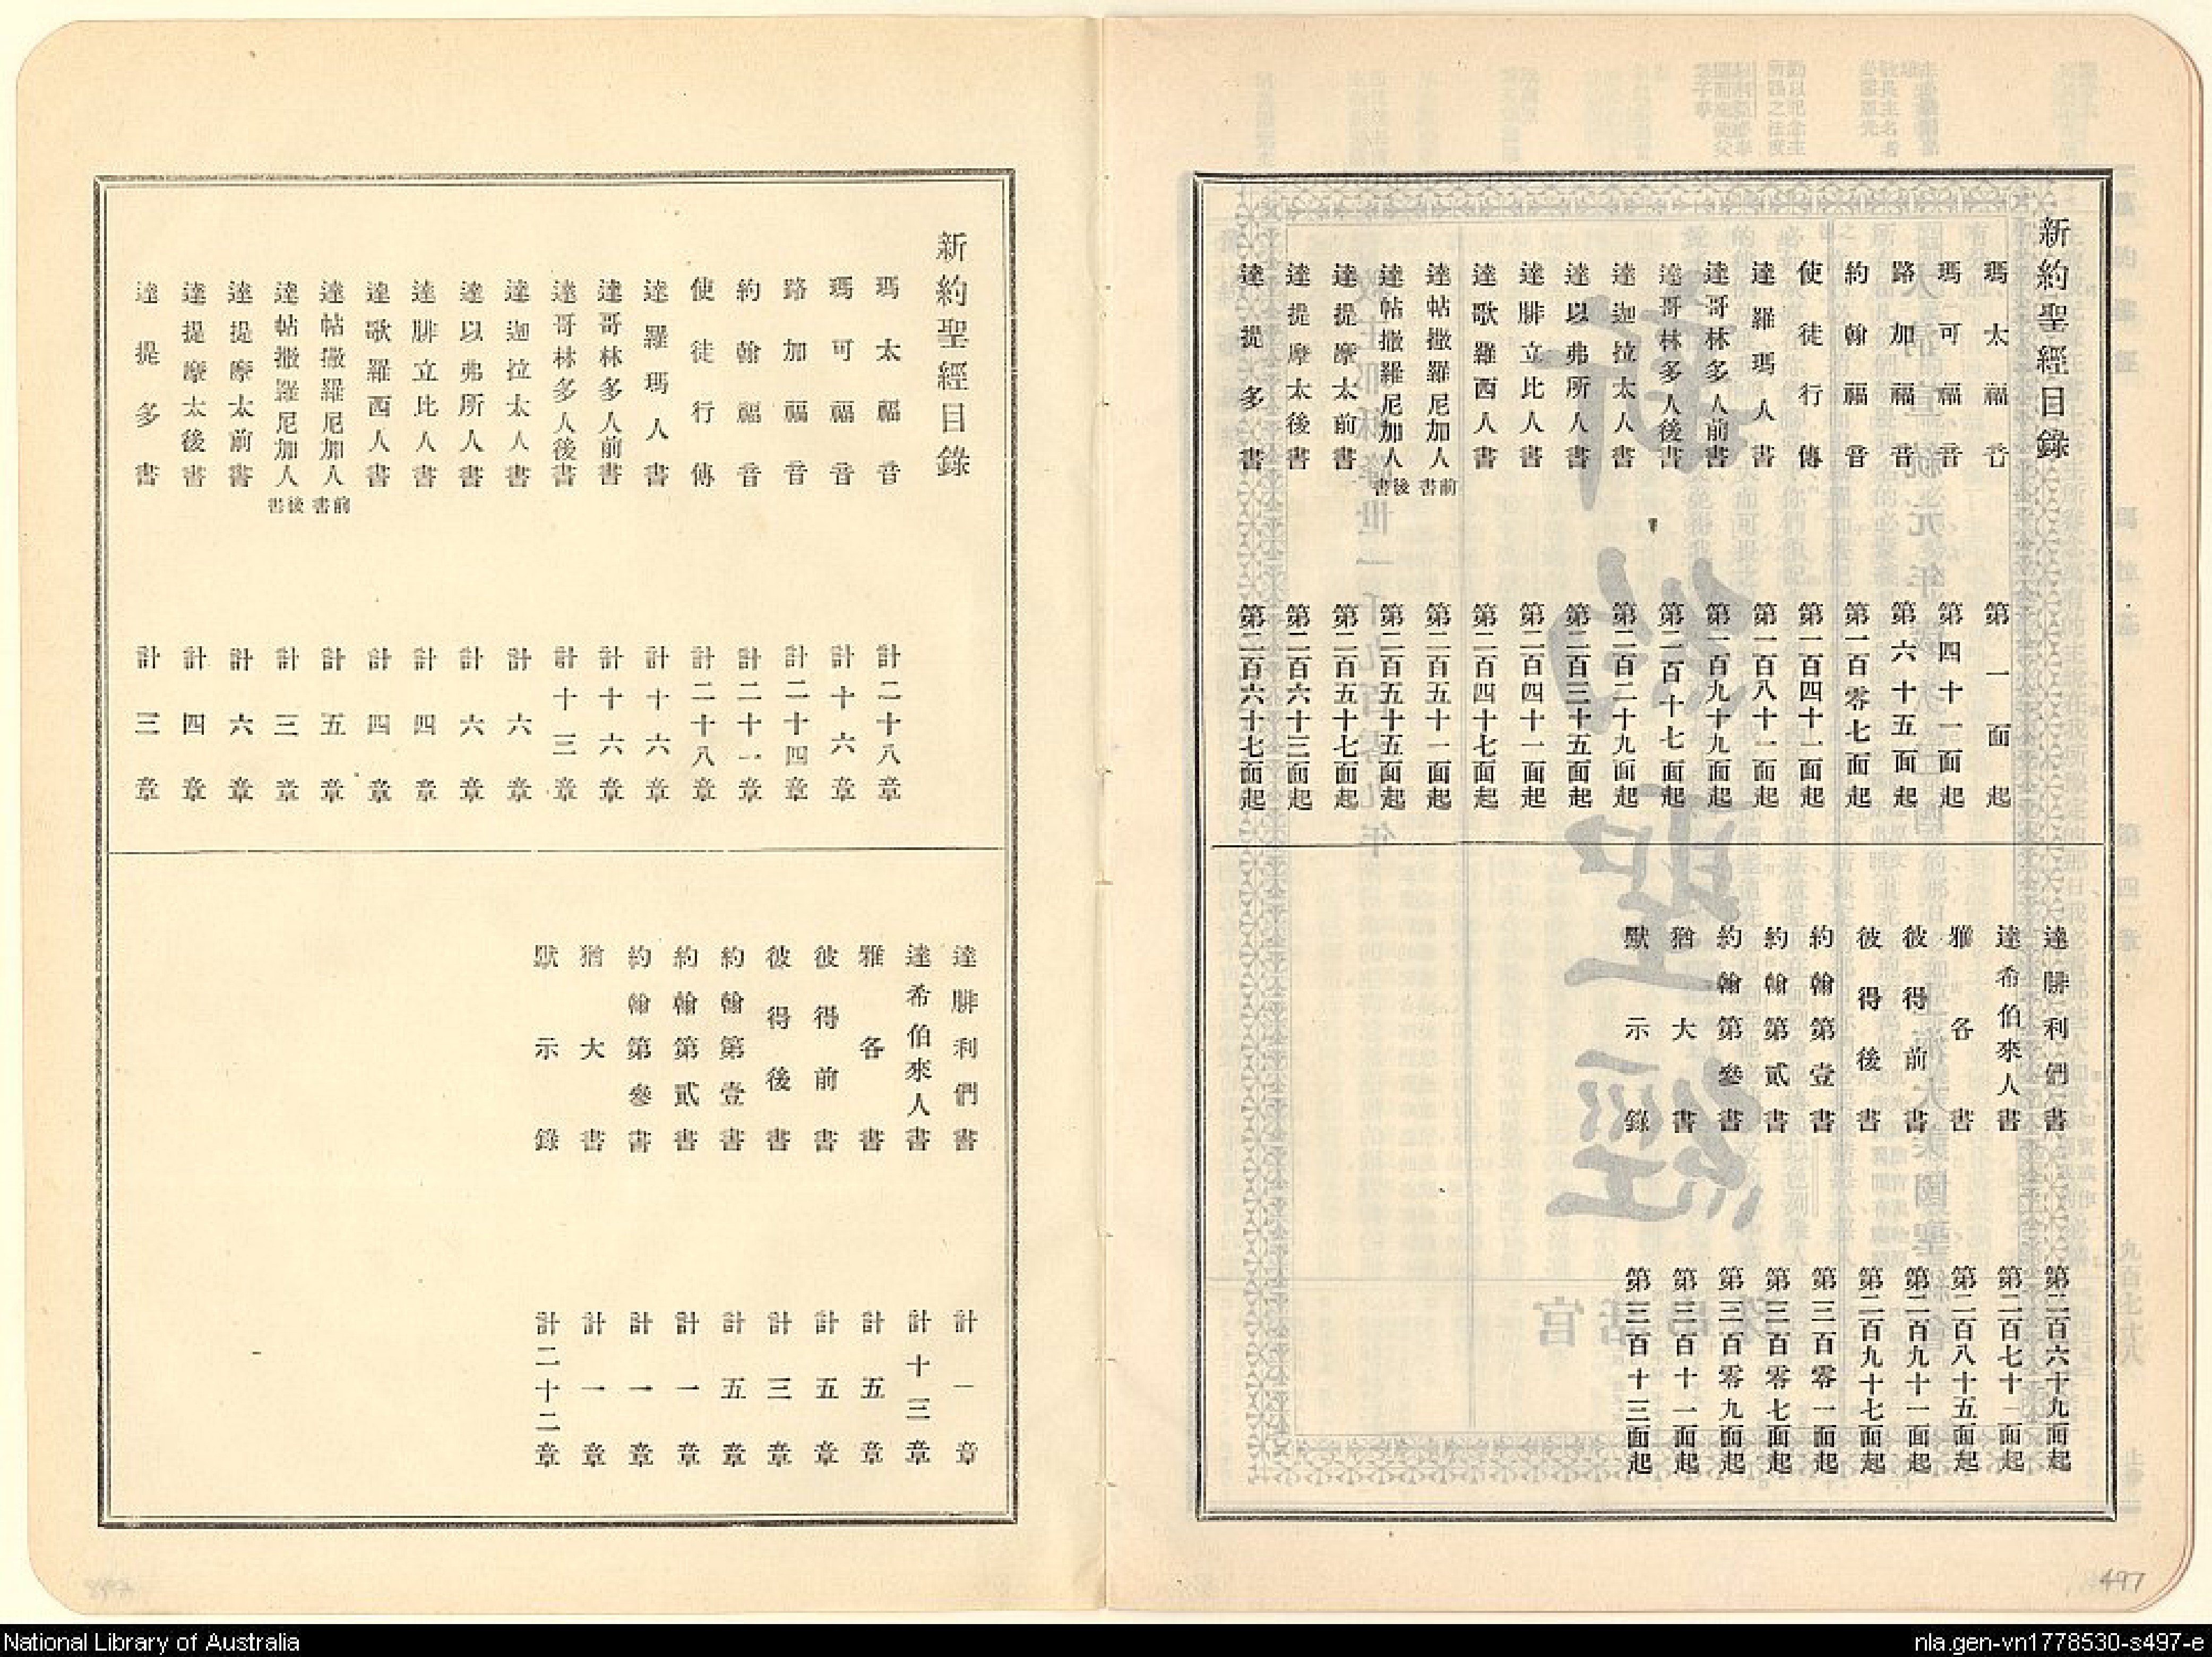 新約聖經目錄
瑪太福音 第一面起
瑪可福音 第四十一面起
路加福音 第六十五面起
約翰福音 第一百零七面起
使徒行傳 第一百四十一面起
達羅瑪人書 第一百八十一面起
達哥林多人前書 第一百九十九面起
達哥林多人後書 第二百十七面起
達迦拉太人書 第二百二十九面起
達以弗所人書 第二百三十五面起
達腓立比人書 第二百四十一面起
達歌羅西人書 第二百四十七面起
達帖撒羅尼加人前書 第二百五十一面起
達帖撒羅尼加人後書 第二百五十五面起
達提摩太前書 第二百五十七面起
達提摩太後書 第二百六十三面起
達提多書 第二百六十七面起
達腓利們書 第二百六十九面起
達希伯來人書 第二百七十一面起
雅各書 第二百八十五面起
彼得前書 第二百九十一面起
彼得後書 第二百九十七面起
約翰第壹書 第三百零一面起
約翰第貳書 第三百零七面起
約翰第參書 第三百零九面起
猶大書 第三百十一面起
默示錄 第三百十三面起
497
新約聖經目錄
瑪太福音 計二十八章
瑪可福音 計十六章
路加福音 計二十四章
約翰福音 計二十一章
使徒行傳 計二十八章
達羅瑪人書 計十六章
達哥林多人前書 計十六章
達哥林多人後書 計十三章
達迦拉太人書 計六章
達以弗所人書 計六章
達腓立比人書 計四章
達歌羅西人書 計四章
達帖撒羅尼加人前書 計五章
達帖撒羅尼加人後書 計三章
達提摩太前書 計六章
達提摩太後書 計四章
達提多書 計三章
達腓利們書 計一章
達希伯來人書 計十三章
雅各書 計五章
彼得前書 計五章
彼得後書 計三章
約翰第壹書 計五章
約翰第貳書 計一章
約翰第參書 計一章
猶大書 計一章
默示錄 計二十二章
National Library of Australia
nla.gen-vn1778530-s497-e